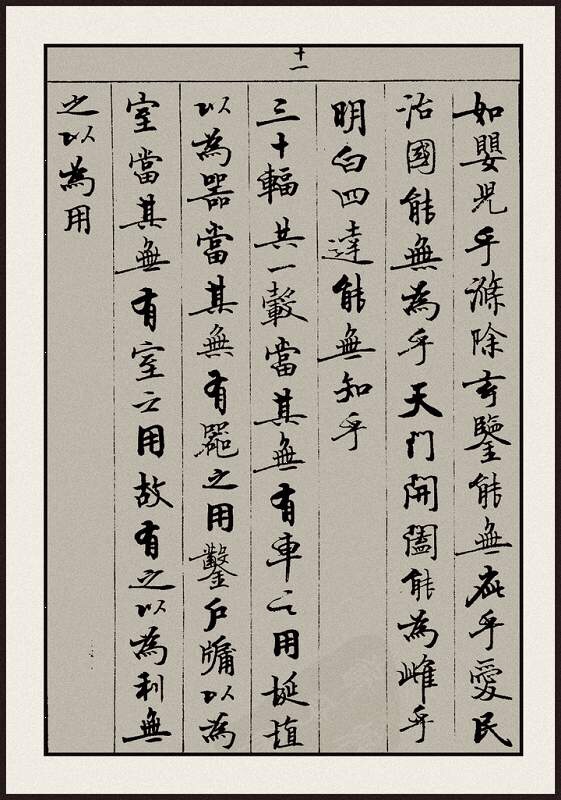 十一
如嬰兒乎滌除玄鑒能無疵乎愛民
治國能無為乎天門開闔能為雌乎
明白四達能無知乎
三十輻共一轂當其無有車之用埏埴
以為器當其無有器之用鑿戶牖以為
室當其無有室之用故有之以為利無
之以為用